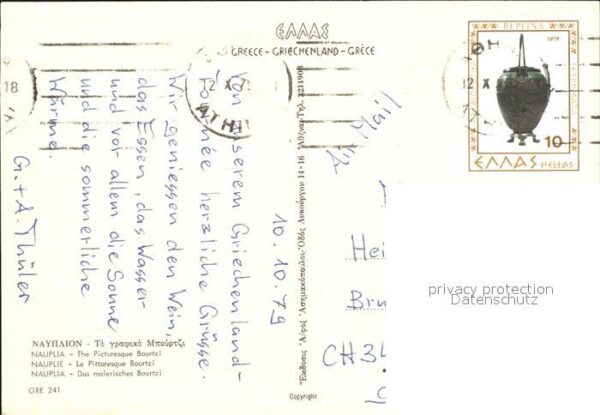 ΕΛΛΑΣ
GREECE - GRIECHENLAND - GRÈCE
ΒΕΡΓΙΝΑ
1979
10
ΕΛΛΑΣ HELLAS
18
12 X
ΑΘΗ
10.10.79
Von unserem Griechenland-
Tournée herzliche Grüsse.
Wir geniessen den Wein,
das Essen, das Wasser
und vor allem die Sonne
und die sommerliche
Wärme.
G.+A. Thüler
Air Mail
Hei
Bru
CH34
privacy protection
Datenschutz
ΝΑΥΠΛΙΟΝ - Τὸ γραφικὸ Μπούρτζι
NAUPLIA - The Picturesque Bourtzi
NAUPLIE - Le Pittoresque Bourtzi
NAUPLIA - Das malerisches Bourtzi
GRE 241
Copyright